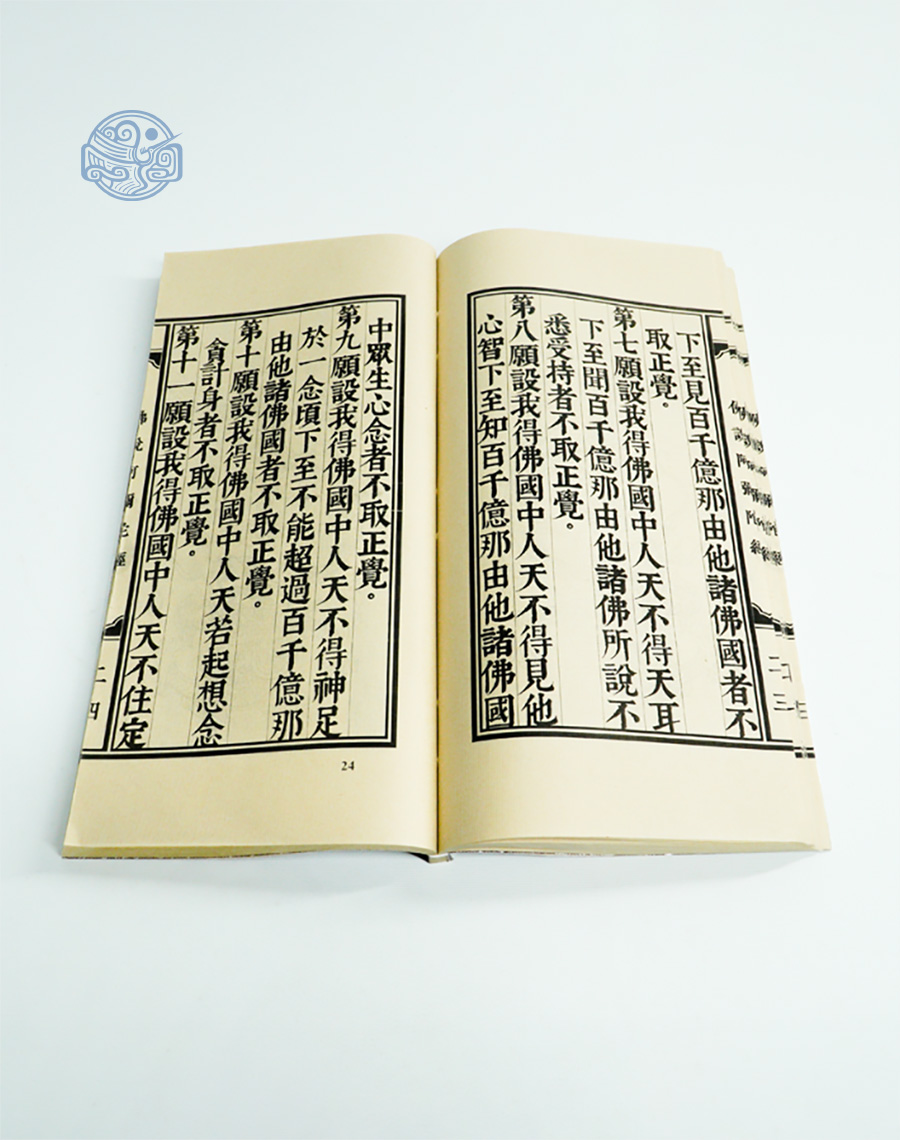 下至見百千億那由他諸佛國者不
取正覺。
第七願設我得佛國中人天不得天耳
下至聞百千億那由他諸佛所說不
悉受持者不取正覺。
第八願設我得佛國中人天不得見他
心智下至知百千億那由他諸佛國
中眾生心念者不取正覺。
第九願設我得佛國中人天不得神足
於一念頃下至不能超過百千億那
由他諸佛國者不取正覺。
第十願設我得佛國中人天若起想念
貪計身者不取正覺。
第十一願設我得佛國中人天不住定
二三
二四
24